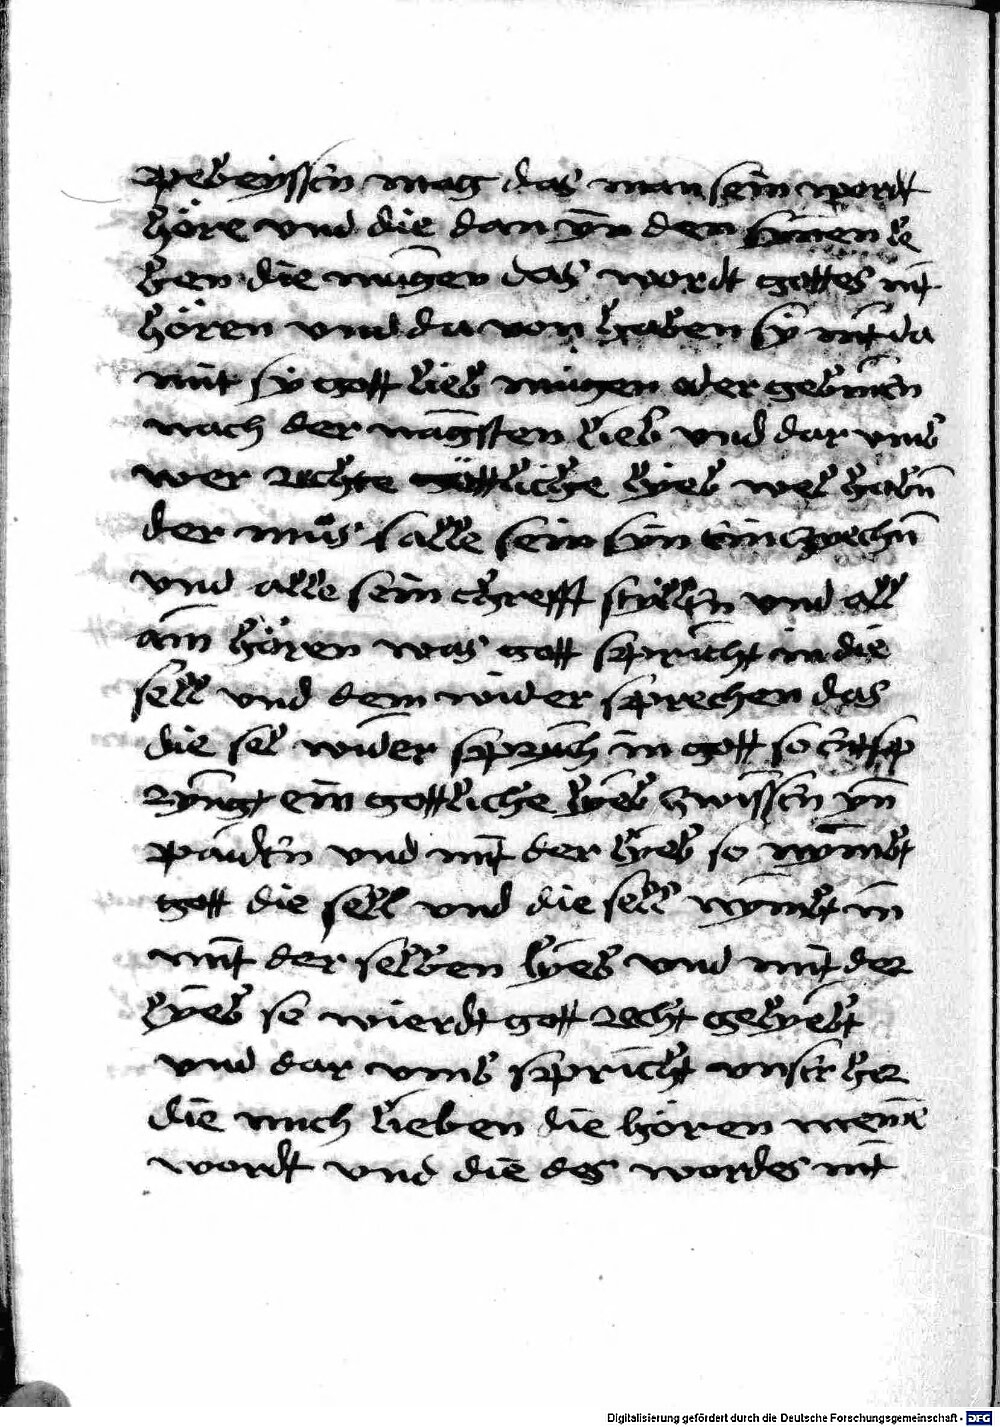 peweyssen mag das man sein wordt
höre vnd die dan yn den synnen le
ben die mügen das wordt gottes nit
hören vnd da von haben sy nit da
mit sy gott lieb mügen oder gebinen
nach der nagsten lieb vnd dar vmb
wer rechte göttliche lyeb wel haben
der mus alle sein syn ein zyechn
vnd alle sein chrefft stillen vnd all
ain hören was gott spricht in die
sell vnd dem wider sprechen das
die sel wider sprich in gott so entsp
ryngt ein gottliche lyeb zwissen yn
paiden vnd mit der lyeb so nymbt
gott die sell vnd die sell nymbt in
mit der selben lyeb vnd mit der
lyeb so wierdt gott recht gelyebt
vnd dar vmb spricht vnser her
die mich lieben die hören meine
wordt vnd die des wordes nit
Digitalisierung gefördert durch die Deutsche Forschungsgemeinschaft - DFG